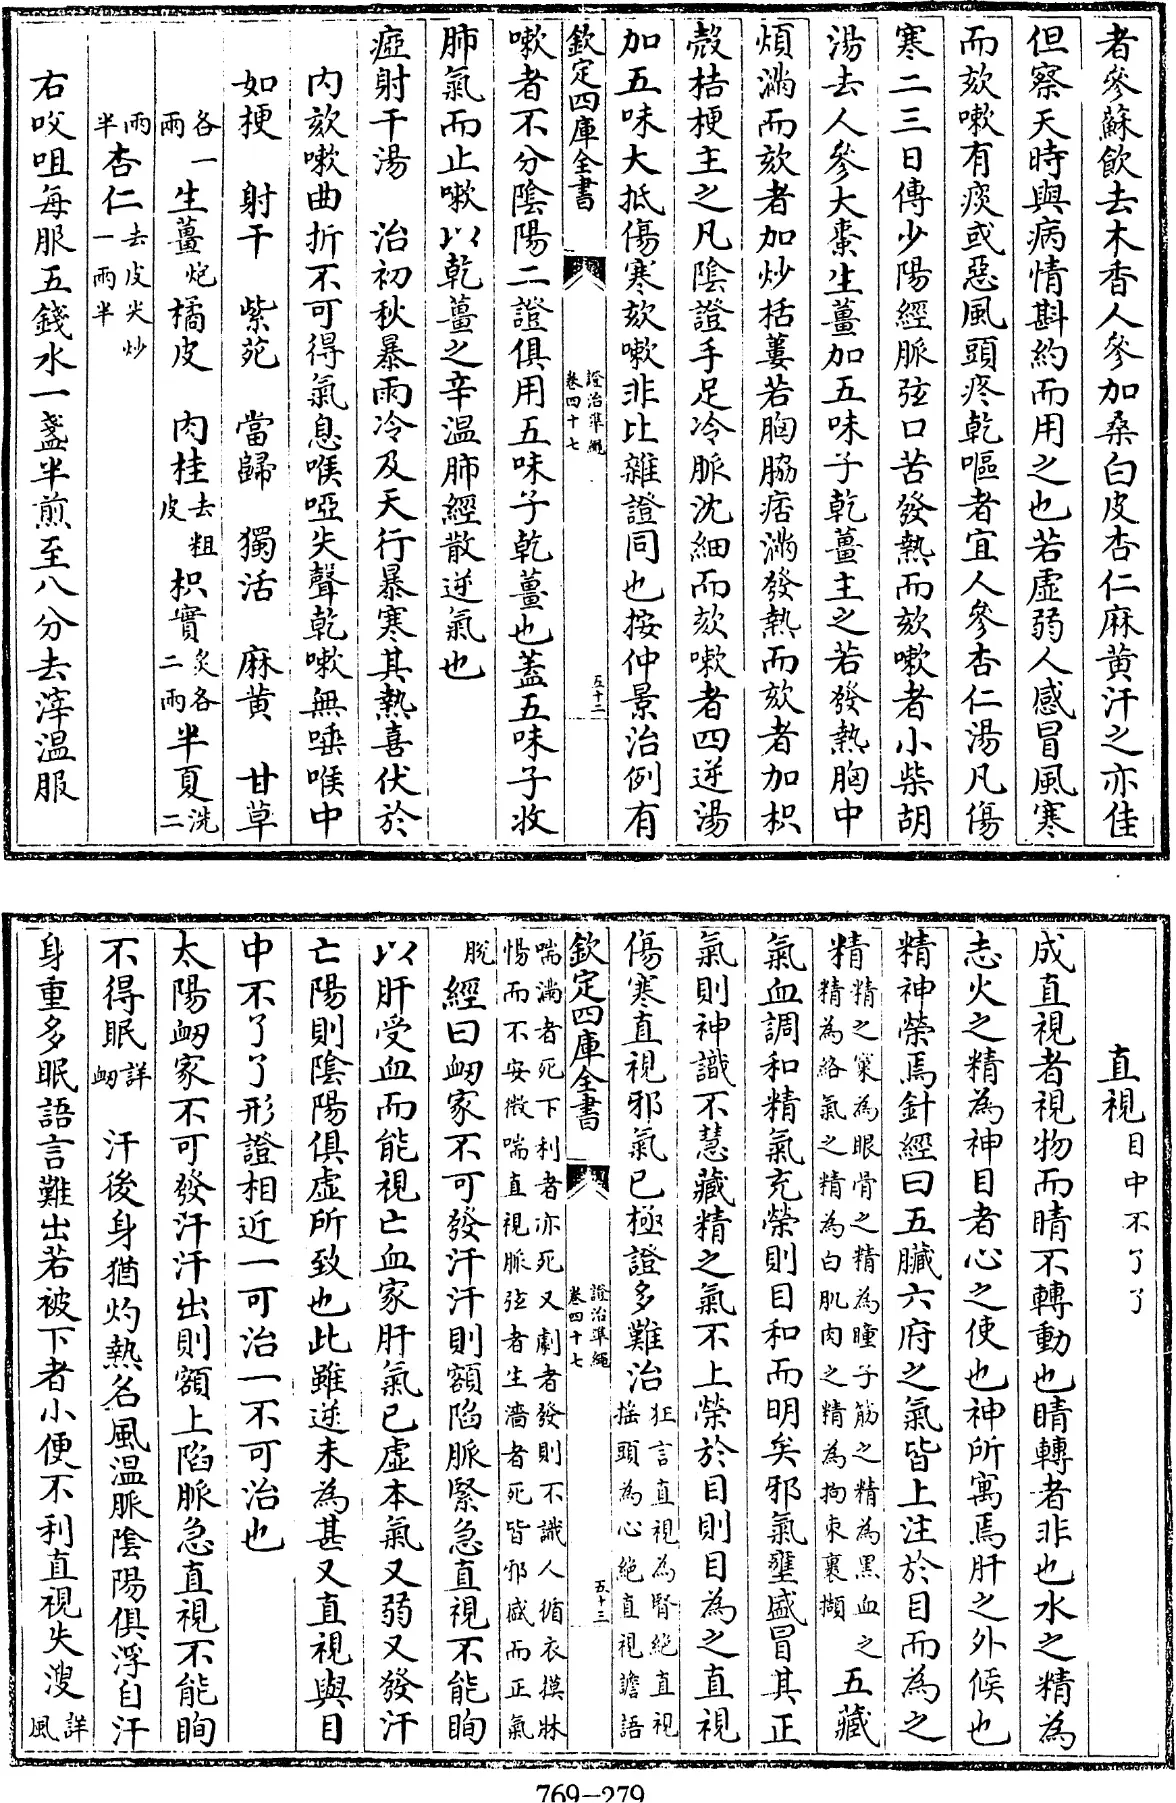 者參蘇飲去木香人參加桑白皮杏仁麻黄汗之亦佳
但察天時與病情斟約而用之也若虛弱人感冒風寒
而欬嗽有痰或惡風頭疼乾嘔者宜人參杏仁湯凡傷
寒二三日傳少陽經脈弦口苦發熱而欬嗽者小柴胡
湯去人參大棗生薑加五味子乾薑主之若發熱胸中
煩滿而欬者加炒栝蔞若胸脇痞滿發熱而欬者加枳
殼桔梗主之凡陰證手足冷脈沈細而欬嗽者四逆湯
加五味大抵傷寒欬嗽非比雜證同也按仲景治例有
欽定四庫全書 證治準繩 卷四十七 五十二
嗽者不分陰陽二證俱用五味子乾薑也蓋五味子收
肺氣而止嗽以乾薑之辛温肺經散逆氣也
瘂射干湯 治初秋暴雨冷及天行暴寒其熱喜伏於
内欬嗽曲折不可得氣息喉啞失聲乾嗽無唾喉中
如梗 射干 紫菀 當歸 獨活 麻黄 甘草
各一兩 生薑炮 橘皮 肉桂去粗皮 枳實炙各二兩 半夏洗二
兩半 杏仁去皮尖炒一兩半
右㕮咀每服五錢水一盞半煎至八分去滓温服
直視目中不了了
成直視者視物而睛不轉動也睛轉者非也水之精為
志火之精為神目者心之使也神所寓焉肝之外候也
精神榮焉針經曰五臟六府之氣皆上注於目而為之
精精之窠為眼骨之精為瞳子筋之精為黑血之精為絡氣之精為白肌肉之精為拘束裏擷 五藏
氣血調和精氣充榮則目和而明矣邪氣壅盛冒其正
氣則神識不慧藏精之氣不上榮於目則目為之直視
傷寒直視邪氣已極證多難治狂言直視為腎絶直視搖頭為心絶直視譫語
欽定四庫全書 證治準繩 卷四十七 五十三
喘滿者死下利者亦死又劇者發則不識人循衣摸牀惕而不安微喘直視脈弦者生濇者死皆邪盛而正氣
脫 經曰衂家不可發汗汗則額陷脈緊急直視不能眴
以肝受血而能視亡血家肝氣已虛本氣又弱又發汗
亡陽則陰陽俱虛所致也此雖逆未為甚又直視與目
中不了了形證相近一可治一不可治也
太陽衂家不可發汗汗出則額上陷脈急直視不能眴
不得眠詳衂 汗後身猶灼熱名風温脈陰陽俱浮自汗
身重多眠語言難出若被下者小便不利直視失溲詳風
769–279